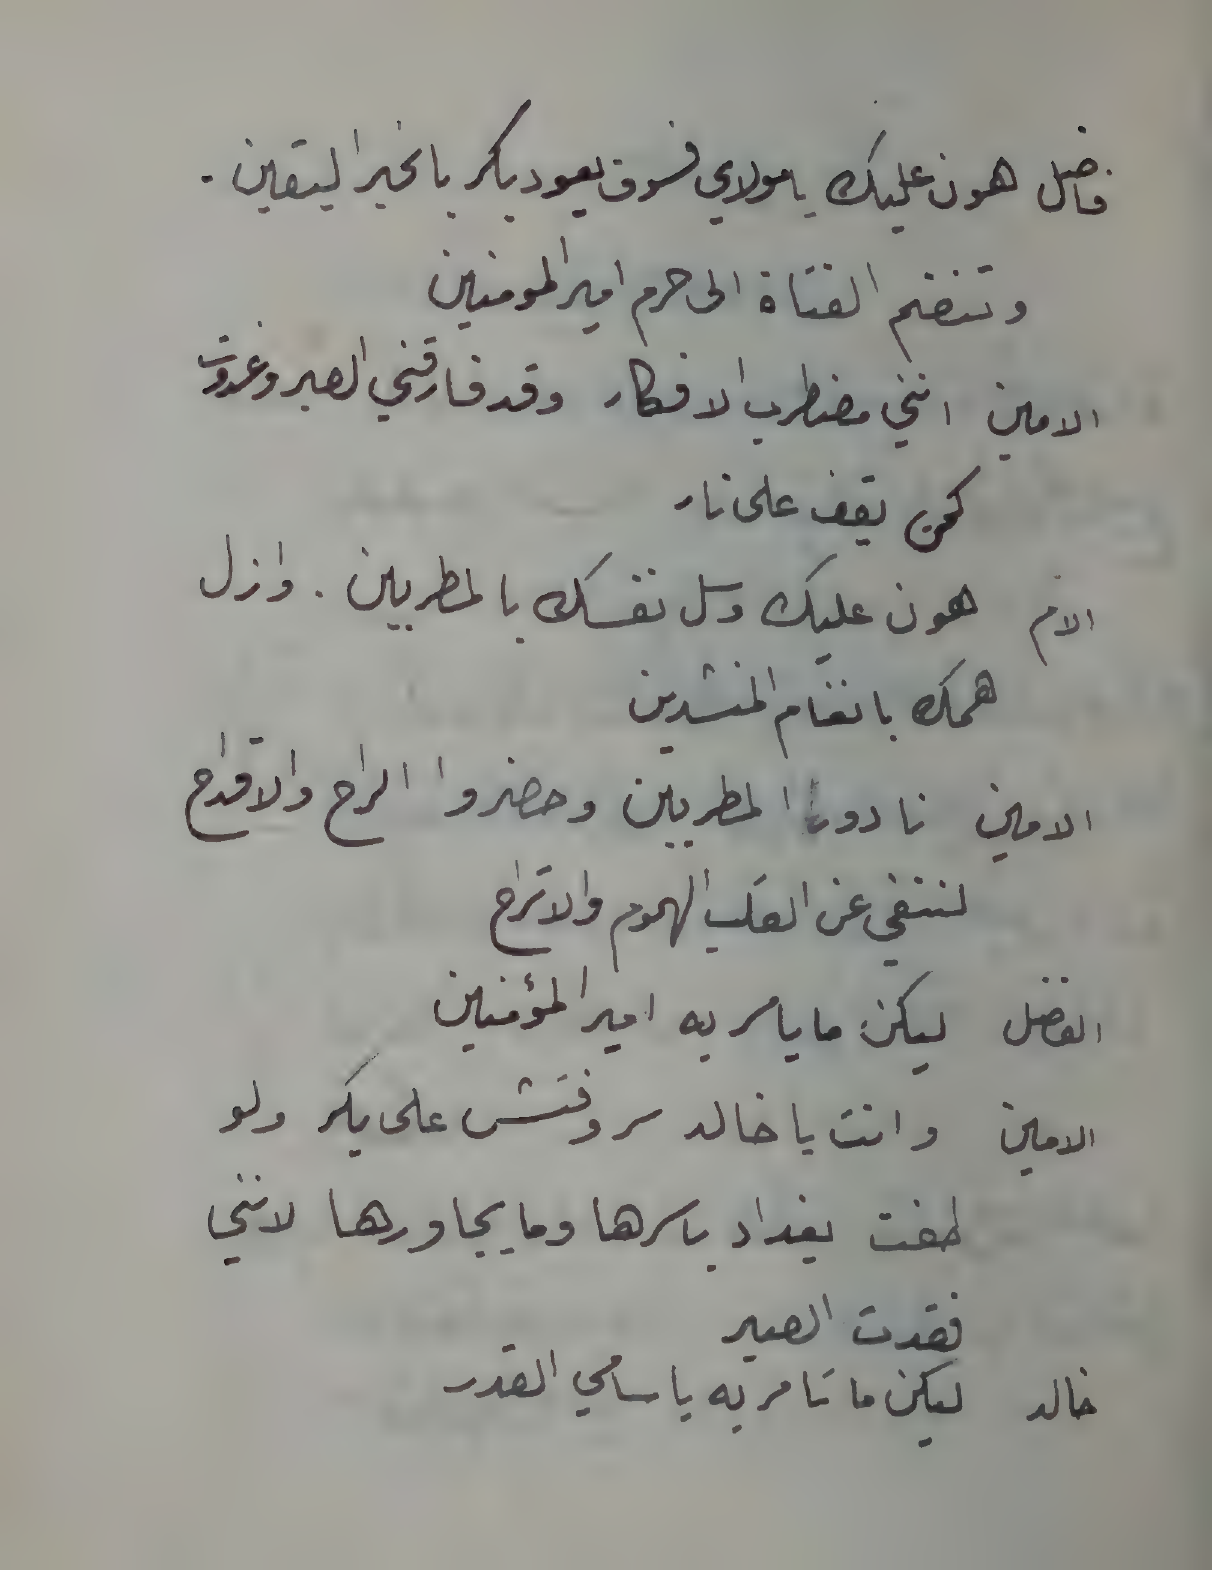 فاضل هون عليك يا مولاي فسوف يعود بكر بالخبر اليقين .
وتنضم الفتاة الى حرم امير المومنين
الامين انني مضطرب الافكار وقد فارقني الصبر وغدوت
كمن يقف على نار
الام هون عليك وسل نفسك بالمطربين . وازل
همك بانغام المنشدين
الامين نادوا المطربين وحضروا الراح والاقداح
لننفي عن القلب الهموم والاتراح
الفضل ليكن ما يامر به امير المؤمنين
الامين وانت يا خالد سر وفتش على بكر ولو
طفت بغداد باسرها وما يجاورها لانني
فقدت الصبر
خالد ليكن ما تامر به يا سامي القدر